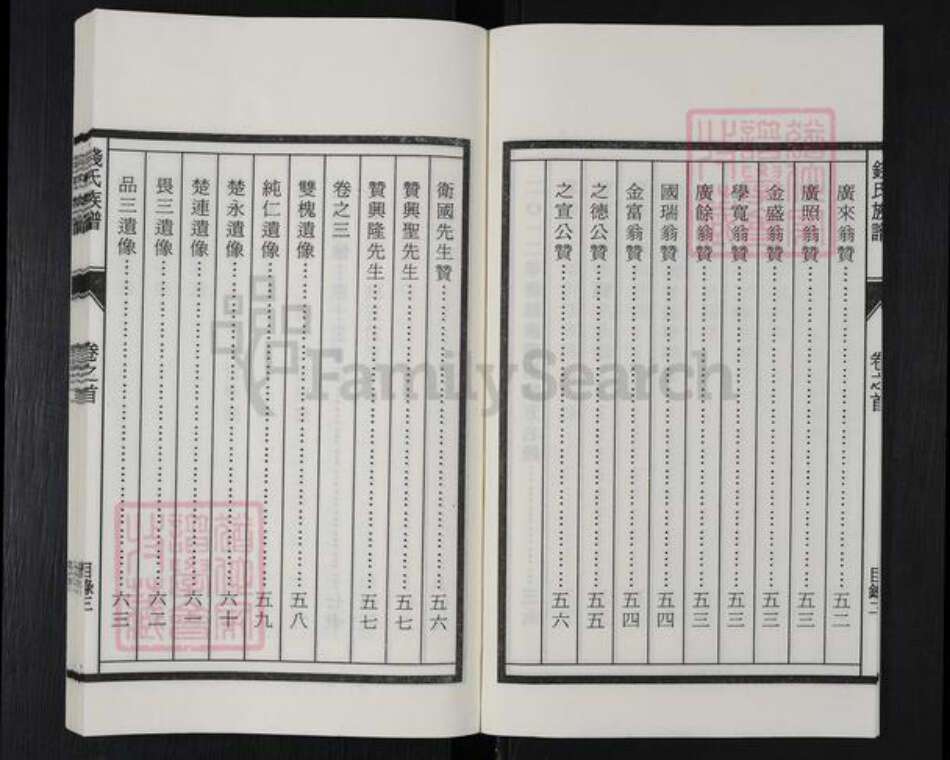 廣來翁贊……五二
廣照翁贊……五三
金盛翁贊……五三
學寬翁贊……五三
廣餘翁贊……五三
國瑞翁贊……五四
金富翁贊……五四
之德公贊……五五
之宣公贊……五六
錢氏族譜
卷之首
目錄二
衛國先生贊……五六
贊興聖先生……五七
贊興隆先生……五七
卷之三
雙槐遺像……五八
純仁遺像……五九
楚永遺像……六十
楚連遺像……六一
畏三遺像……六二
品三遺像……六三
錢氏族譜
卷之首
目錄三
FamilySearch